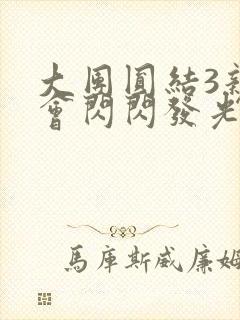 大團圓結3新
會閃閃發光
馬庫斯威廉姆